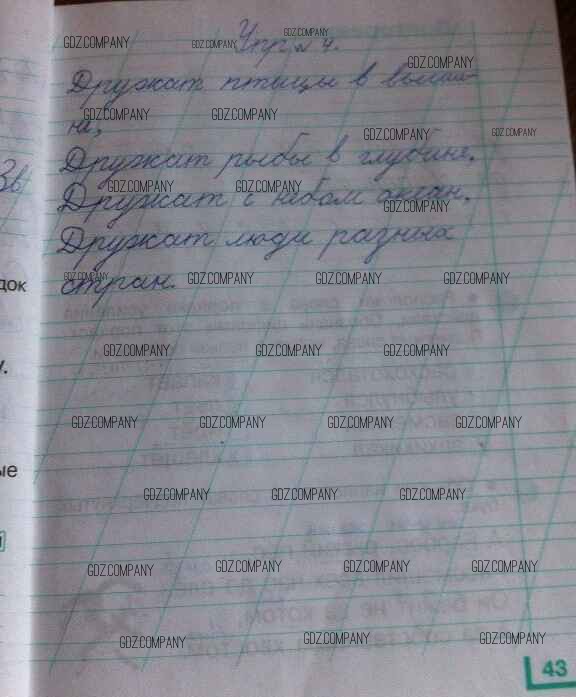 Упр. № 4.
Дружат птицы в выши-
не,
Дружат рыбы в глубине.
Дружат с небом океан.
Дружат люди разных
стран.
док
у.
ые
43
GDZ.COMPANY